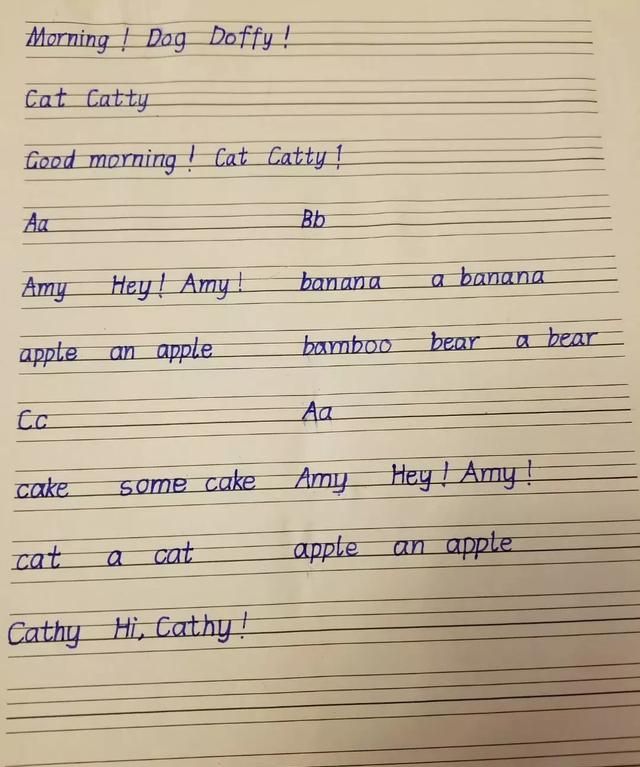 Morning! Dog Doffy!
Cat Catty
Good morning! Cat Catty!
Aa Bb
Amy Hey! Amy! banana a banana
apple an apple bamboo bear a bear
Cc Aa
cake some cake Amy Hey! Amy!
cat a cat apple an apple
Cathy Hi, Cathy!